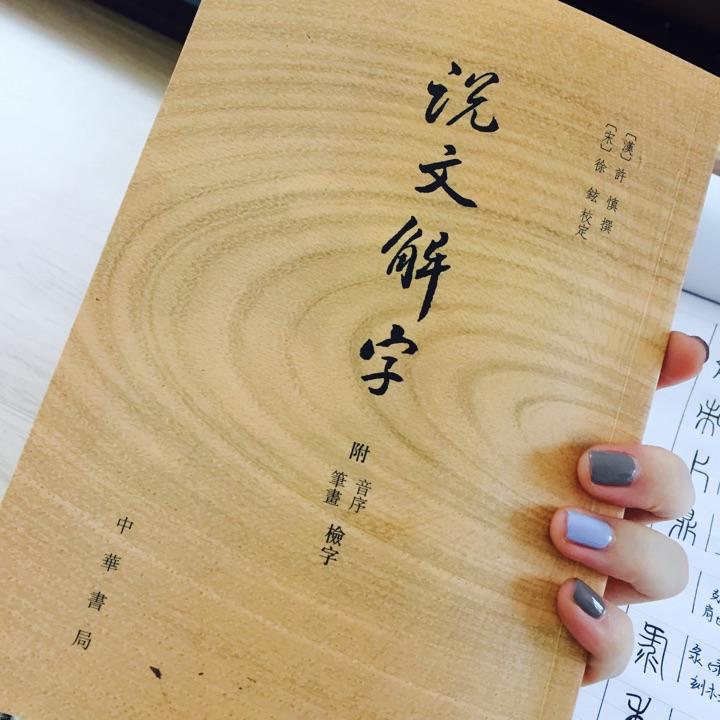 [漢]許慎撰
[宋]徐鉉校定
说文解字
附音序筆畫檢字
中華書局